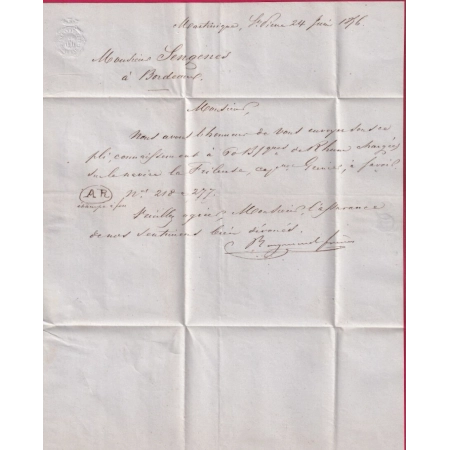 Martinique, St Pierre 24 Juin 1876
Monsieur Sengenes
à Bordeaux.
Monsieur,
Nous avons l'honneur de vous envoyer sous ce
pli, connaissement à 70 B/ques de Rhum chargés
sur le navire la, capne, à savoir
AR
Nos 208 à 277.
Veuillez agréer, Monsieur, l'assurance
de nos sentiments bien dévoués.